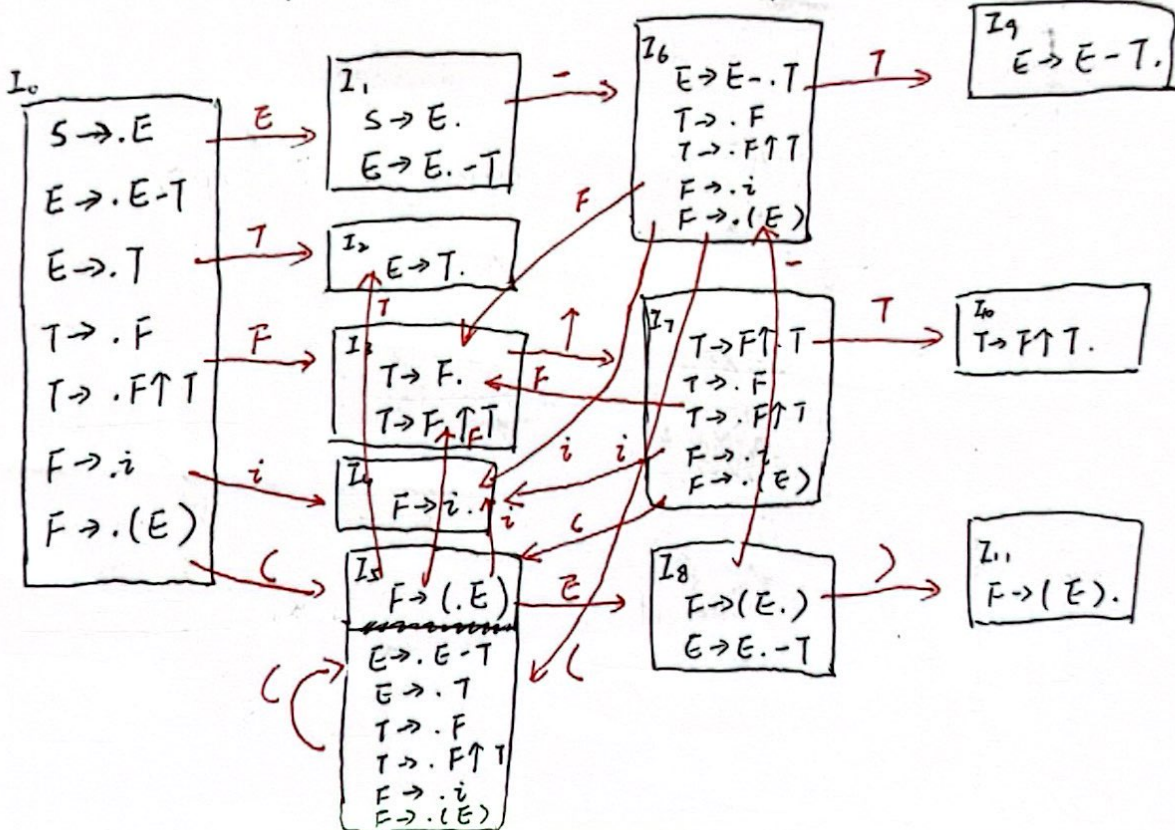 I₀
S → .E
E → .E-T
E → .T
T → .F
T → .F↑T
F → .i
F → .(E)
E
T
F
i
(
I₁
S → E.
E → E.-T
-
I₂
E → T.
T
I₃
T → F.
T → F.↑T
↑
F
F
F
I₄
F → i.
i
i
i
I₅
F → (.E)
E → .E-T
E → .T
T → .F
T → .F↑T
F → .i
F → .(E)
(
E
(
(
I₆
E → E-.T
T → .F
T → .F↑T
F → .i
F → .(E)
T
-
I₇
T → F↑.T
T → .F
T → .F↑T
F → .i
F → .(E)
T
I₈
F → (E.)
E → E.-T
)
I₉
E → E-T.
I₁₀
T → F↑T.
I₁₁
F → (E).